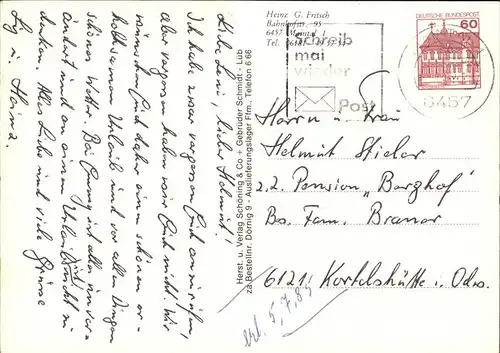 Liebe Leni, lieber Helmut.
Ich habe zwar vergessen Euch anzurufen,
Aber vergessen haben wir Euch nicht. Wir
wünschen Euch daher einen schönen er-
holsamen Urlaub und vor allen Dingen
schönes Wetter. Bei Conny ist alles unver-
ändert und an einen Urlaub nicht zu
denken. Alles Liebe und viele Grüsse
Heinz.
Herst. u. Verlag Schöning & Co + Gebrüder Schmidt - Lüb
zza Bestellnr. Dörnig 9 - Auslieferungslager Ffm., Telefon 6 66
Heinz G. Fritsch
Bahnhofstr. 95
6457 Maintal
Tel. 06181
schreib
mal
wieder
Post
DEUTSCHE BUNDESPOST
60
6457
Herrn u. Frau
Helmut Stieler
z.Z. Pension „Berghof"
Bs. Fam. Braner
6121 Kortelshütte i. Odw.
erl. 5.7.85